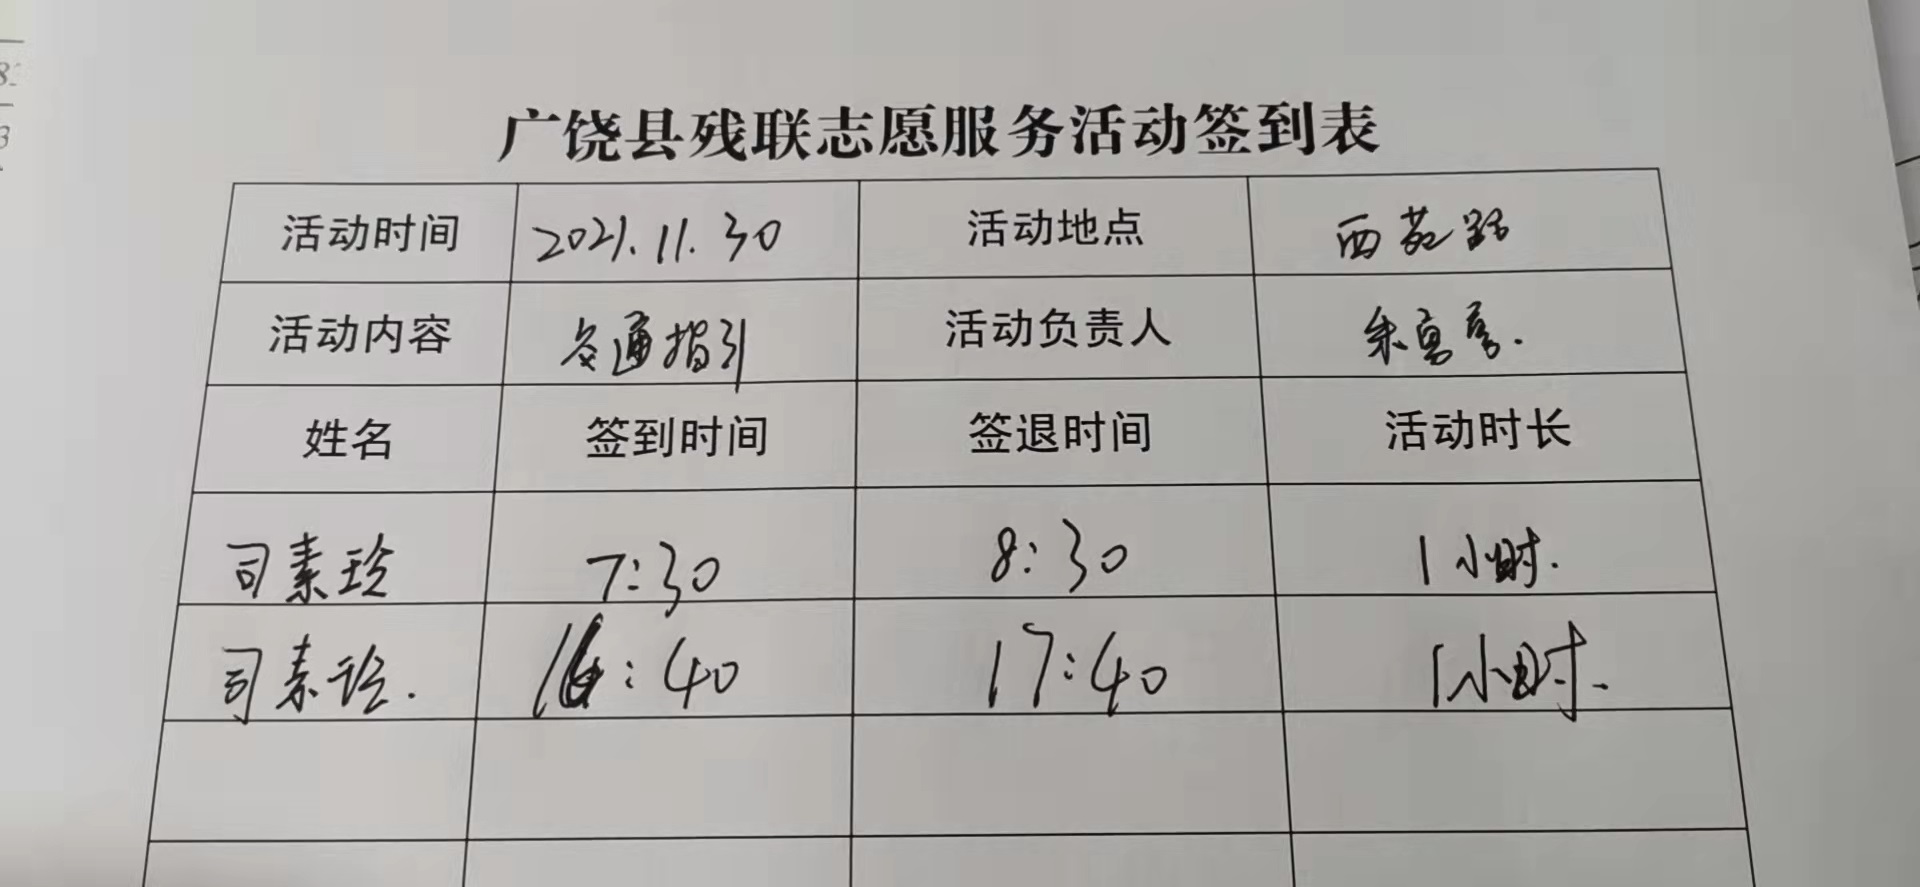 广饶县残联志愿服务活动签到表
活动时间 2021.11.30 活动地点 西苑路
活动内容 交通指引 活动负责人 朱
姓名 签到时间 签退时间 活动时长
司素玲 7:30 8:30 1小时.
司素玲. 16:40 17:40 1小时.